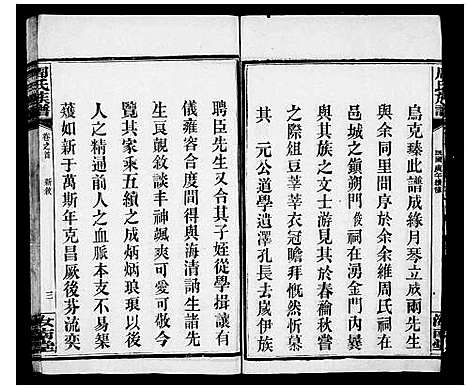 烏克臻此譜成緣月琴立成兩先生
與余同里間序於余余維周氏祠在
邑城之鎮朔門後祠在湧金門內嘗
與其族之文士游見其於春禴秋嘗
之際俎豆莘莘衣冠瞻拜慨然忻慕
其 元公道學遺澤孔長去歲伊族
聘臣先生又合其子姪從學揖讓有
儀雍容合度間得與海清訥生諸先
生哀覿敘談丰神颯爽可愛可敬今
覽其家乘五續之成炳炳琅琅以後
人之精遇前人之血脈本不易槩
蕿如新于萬斯年克昌厥後芬流奕
周氏族譜
卷之首 新敘
三
汝南堂